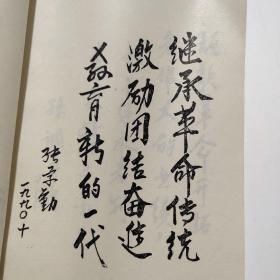 继承革命传统
激励团结奋进
教育新的一代
张景勤
一九九〇十